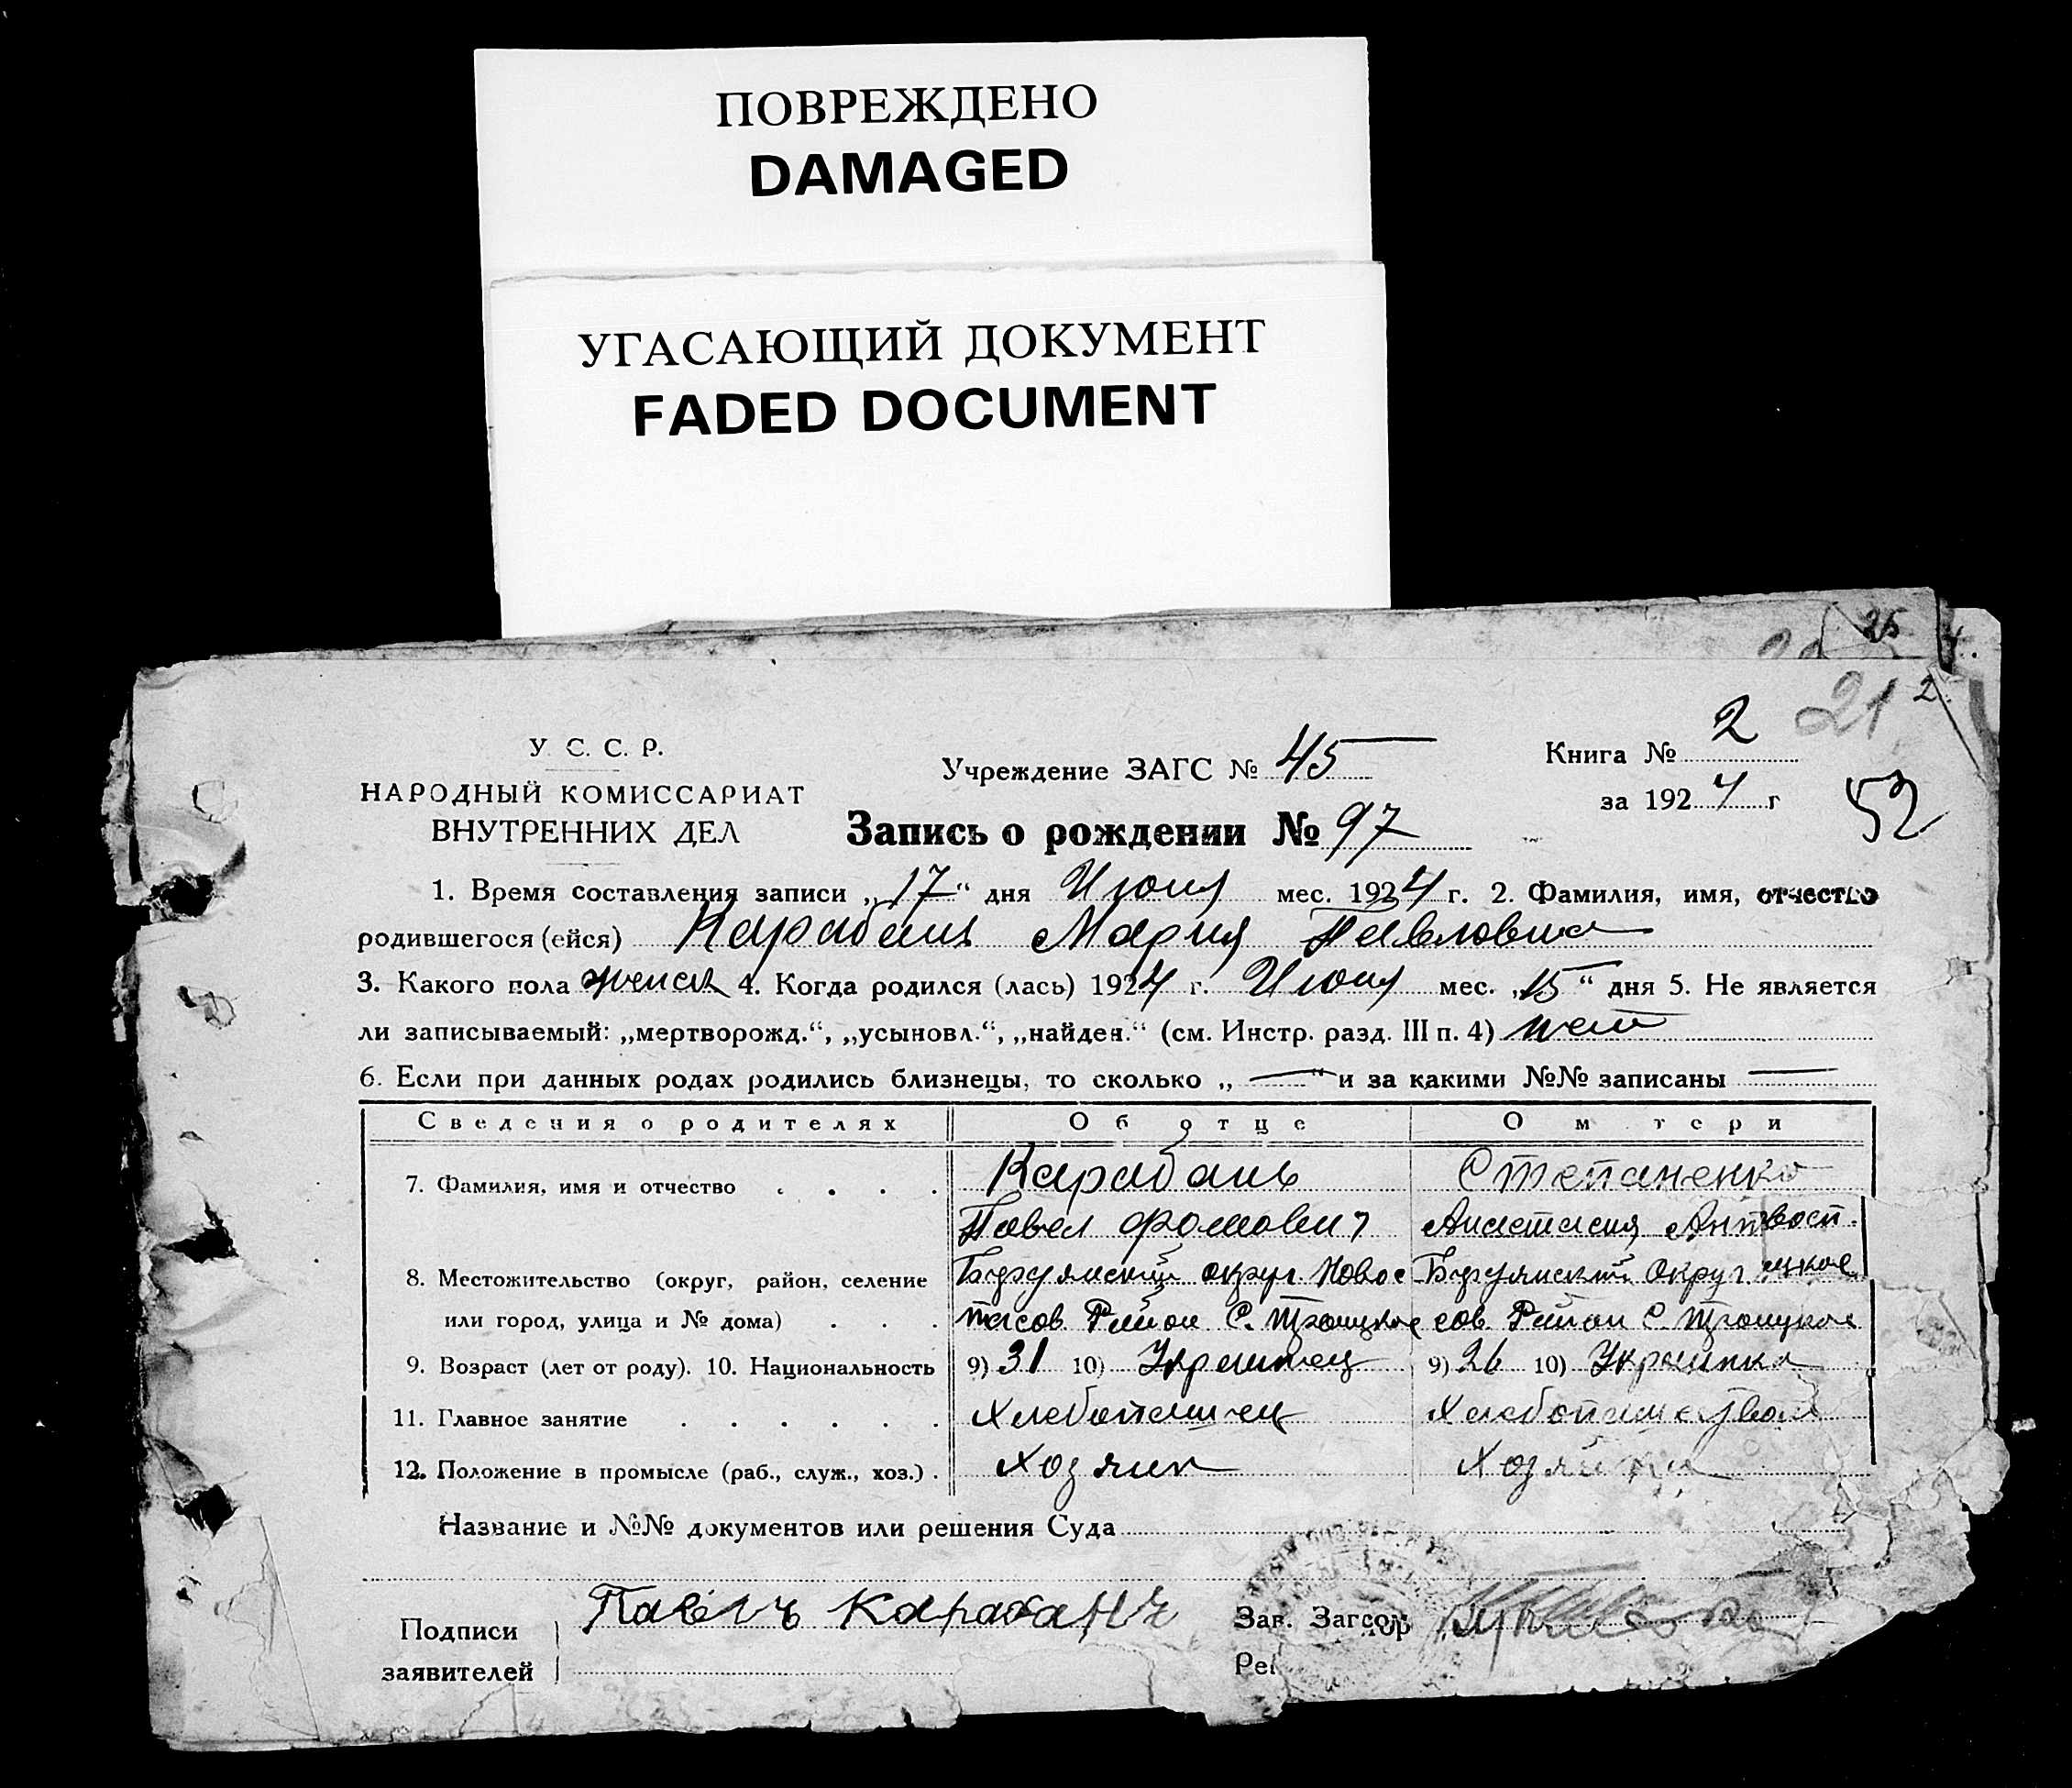 ПОВРЕЖДЕНО
DAMAGED
УГАСАЮЩИЙ ДОКУМЕНТ
FADED DOCUMENT
25
21 2
У. С. С. Р.
НАРОДНЫЙ КОМИССАРИАТ
ВНУТРЕННИХ ДЕЛ
Учреждение ЗАГС № 45
Книга № 2
за 1924 г
52
Запись о рождении № 97
1. Время составления записи „17“ дня Июня мес. 1924 г. 2. Фамилия, имя, отчество
родившегося (ейся) Карабань Мария Павловна
3. Какого пола женск 4. Когда родился (лась) 1924 г. Июня мес. „15“ дня 5. Не является
ли записываемый: „мертворожд.“, „усыновл.“, „найден.“ (см. Инстр. разд. III п. 4) нет
6. Если при данных родах родились близнецы, то сколько „ — “ и за какими №№ записаны —
Сведения о родителях Об отце О м тери
7. Фамилия, имя и отчество . . . . Карабань Степаненко
Павел Фомович Анастасия
8. Местожительство (округ, район, селение округ Новос округ
или город, улица и № дома) . . . пасов Район С. Троицкое сов. Район С. Троицкое
9. Возраст (лет от роду). 10. Национальность 9) 31 10) Украинец 9) 26 10) Украинка
11. Главное занятие . . . . . . Хлебопашец
12. Положение в промысле (раб., служ., хоз.) . Хозяин Хозяйка
Название и №№ документов или решения Суда
Подписи
заявителей
Павелъ Карабанъ
Зав. Загсом